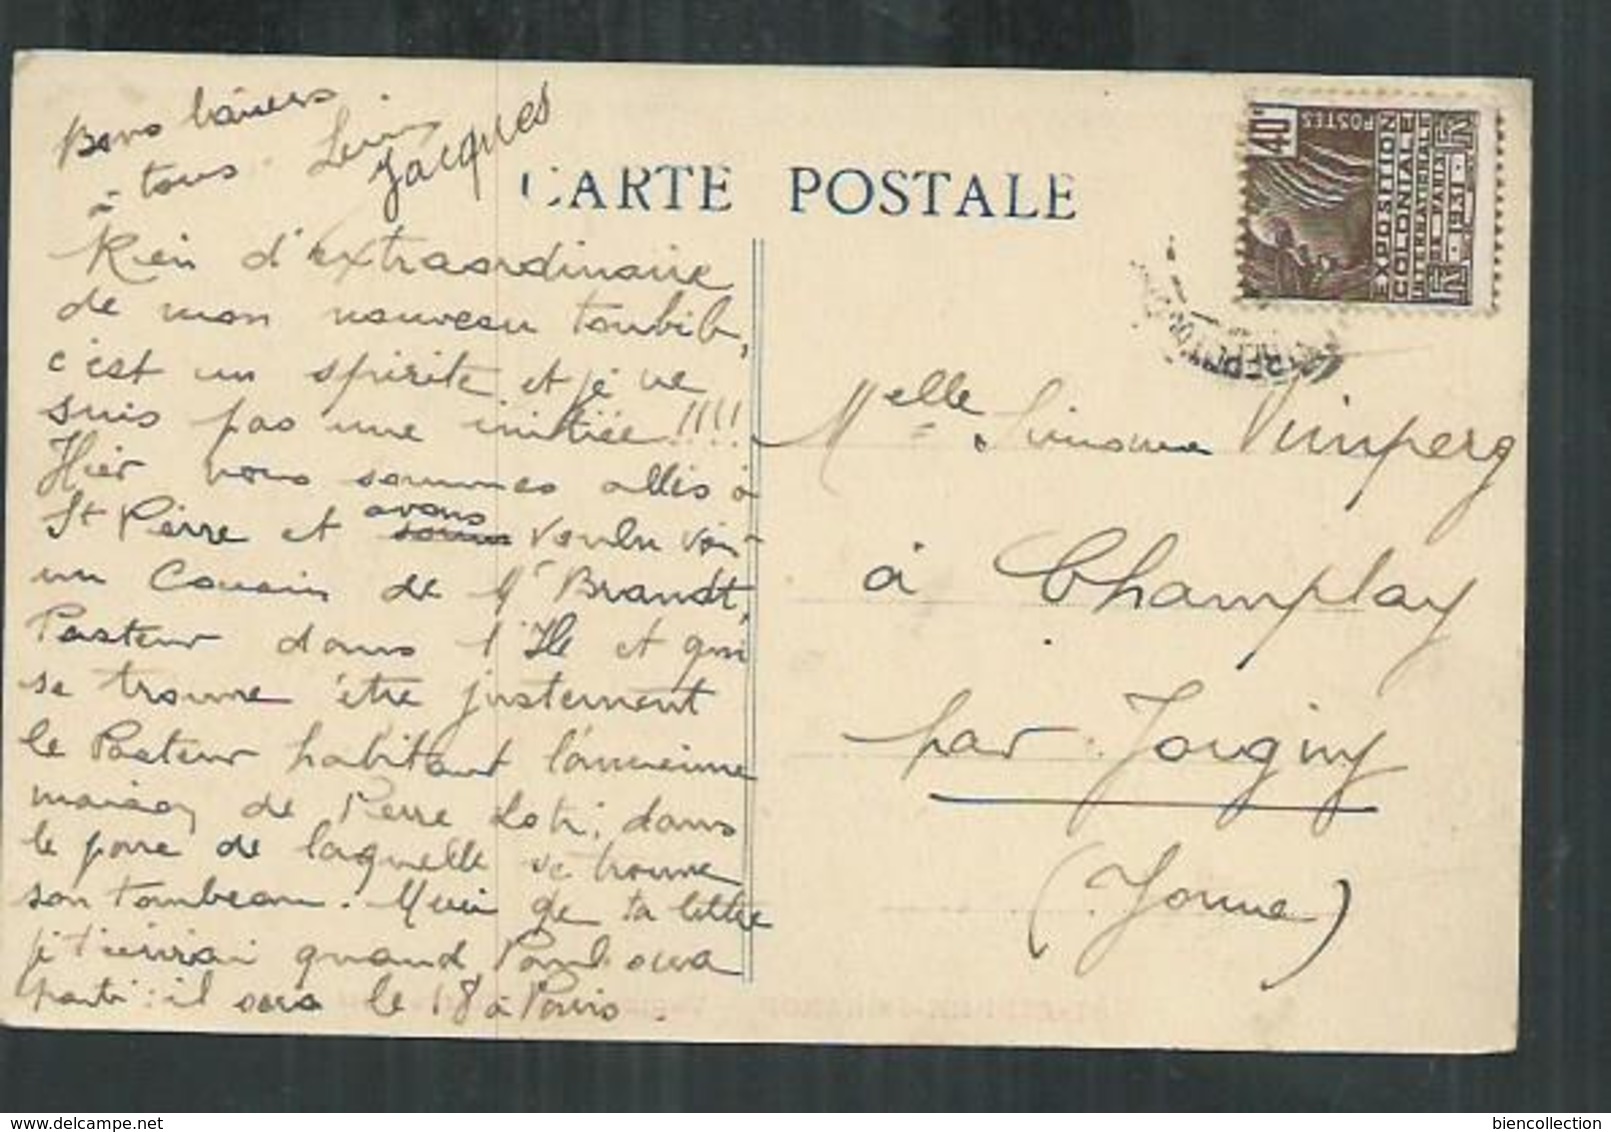 Bons baisers
à tous.
Jacques
CARTE POSTALE
40c
POSTES
EXPOSITION
COLONIALE
INTERNATIONALE
DE PARIS
1931
Rien d'extraordinaire
de mon nouveau toubib,
c'est un spirite et je ne
suis pas une initiée !!!!
Hier nous sommes allés à
St Pierre et avons voulu voir
un Cousin de Mr Brandt,
Pasteur dans l'Ile et qui
se trouve être justement
le Pasteur habitant l'ancienne
maison de Pierre Loti, dans
le parc de laquelle se trouve
son tombeau. Merci de ta lettre
je t'écrirai quand Paul sera
parti : il sera le 18 à Paris.
Melle Simone Vimperg
à Champlay
par Joigny
(Yonne)
delcampe.net
biencollection